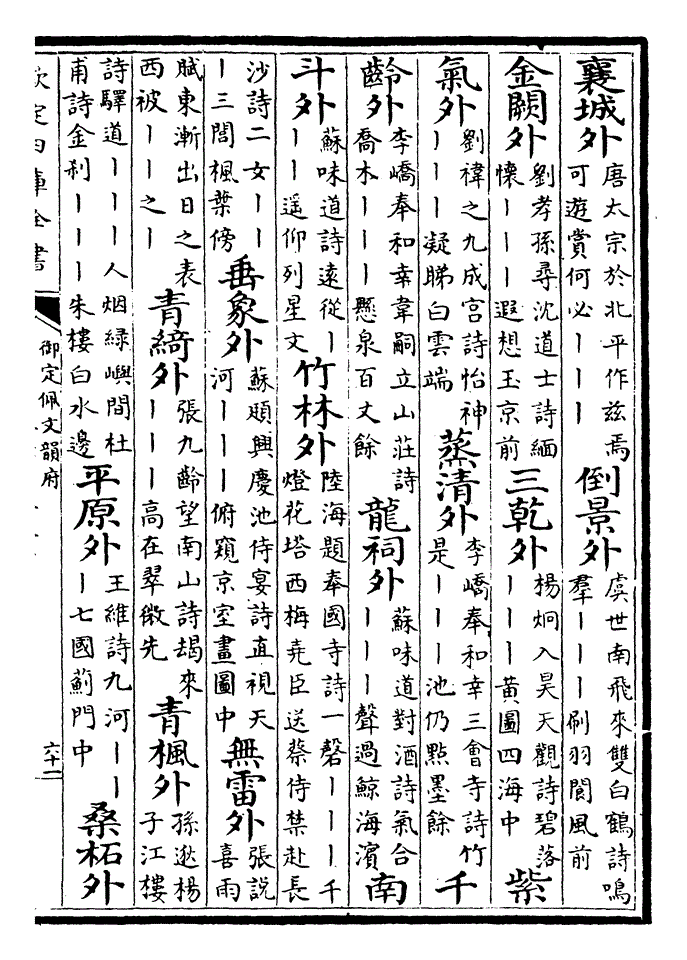 襄城外 唐太宗於北平作兹焉
可遊賞何必丨丨丨
倒景外 虞世南飛來雙白鶴詩鳴
羣丨丨丨刷羽閬風前
金闕外 劉孝孫尋沈道士詩緬
懷丨丨丨遐想玉京前
三乾外 楊炯入昊天觀詩碧落
丨丨丨黄圖四海中
紫
氣外 劉禕之九成宮詩怡神
丨丨丨凝睇白雲端
蒸清外 李嶠奉和幸三會寺詩竹
是丨丨丨池仍點墨餘
千
齡外 李嶠奉和幸韋嗣立山莊詩
喬木丨丨丨懸泉百丈餘
龍祠外 蘇味道對酒詩氣合
丨丨丨聲過鯨海濱
南
斗外 蘇味道詩遠從丨
丨丨遥仰列星文
竹林外 陸海題奉國寺詩一磬丨丨丨千
燈花塔西梅堯臣送蔡侍禁赴長
沙詩二女丨丨
丨三閭楓葉傍
垂象外 蘇頲興慶池侍宴詩直視天
河丨丨丨俯窺京室畫圖中
無雷外 張說
喜雨
賦東漸出日之表
西被丨丨之丨
青綺外 張九齡望南山詩朅來
丨丨丨高在翠微先
青楓外 孫逖楊
子江樓
詩驛道丨丨丨人烟緑嶼間杜
甫詩金刹丨丨丨朱樓白水邊
平原外 王維詩九河丨丨
丨七國薊門中
桑柘外
欽定四庫全書
御定佩文韻府
六十二